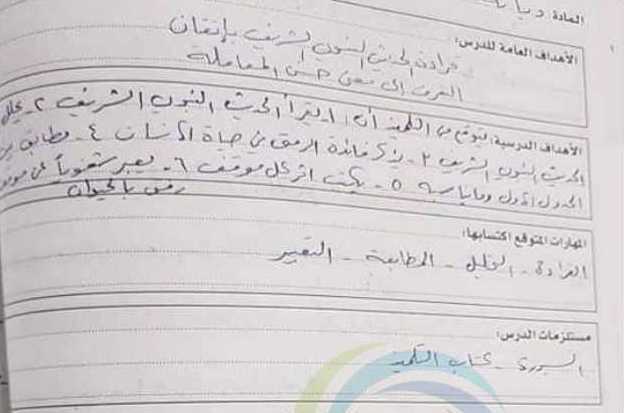 المادة: ديا
الأهداف العامة للدرس:
قراءة الحديث النبوي الشريف بإتقان
التعرف إلى معنى حسن المعاملة
الأهداف الدرسية: يتوقع من التلميذ أن: ١- يقرأ الحديث النبوي الشريف ٢- يحلل
الحديث النبوي الشريف ٣- يذكر فائدة الرفق من حياة الإنسان ٤- يطابق بين
الجدول الأول وما يناسبه ٥- يكتب أثر كل موقف ٦- يعبر شفوياً عن
رفق بالحيوان
المهارات المتوقع اكتسابها:
القراءة - التحليل - المطابقة - التعبير
مستلزمات الدرس:
السبورة - كتاب التلميذ